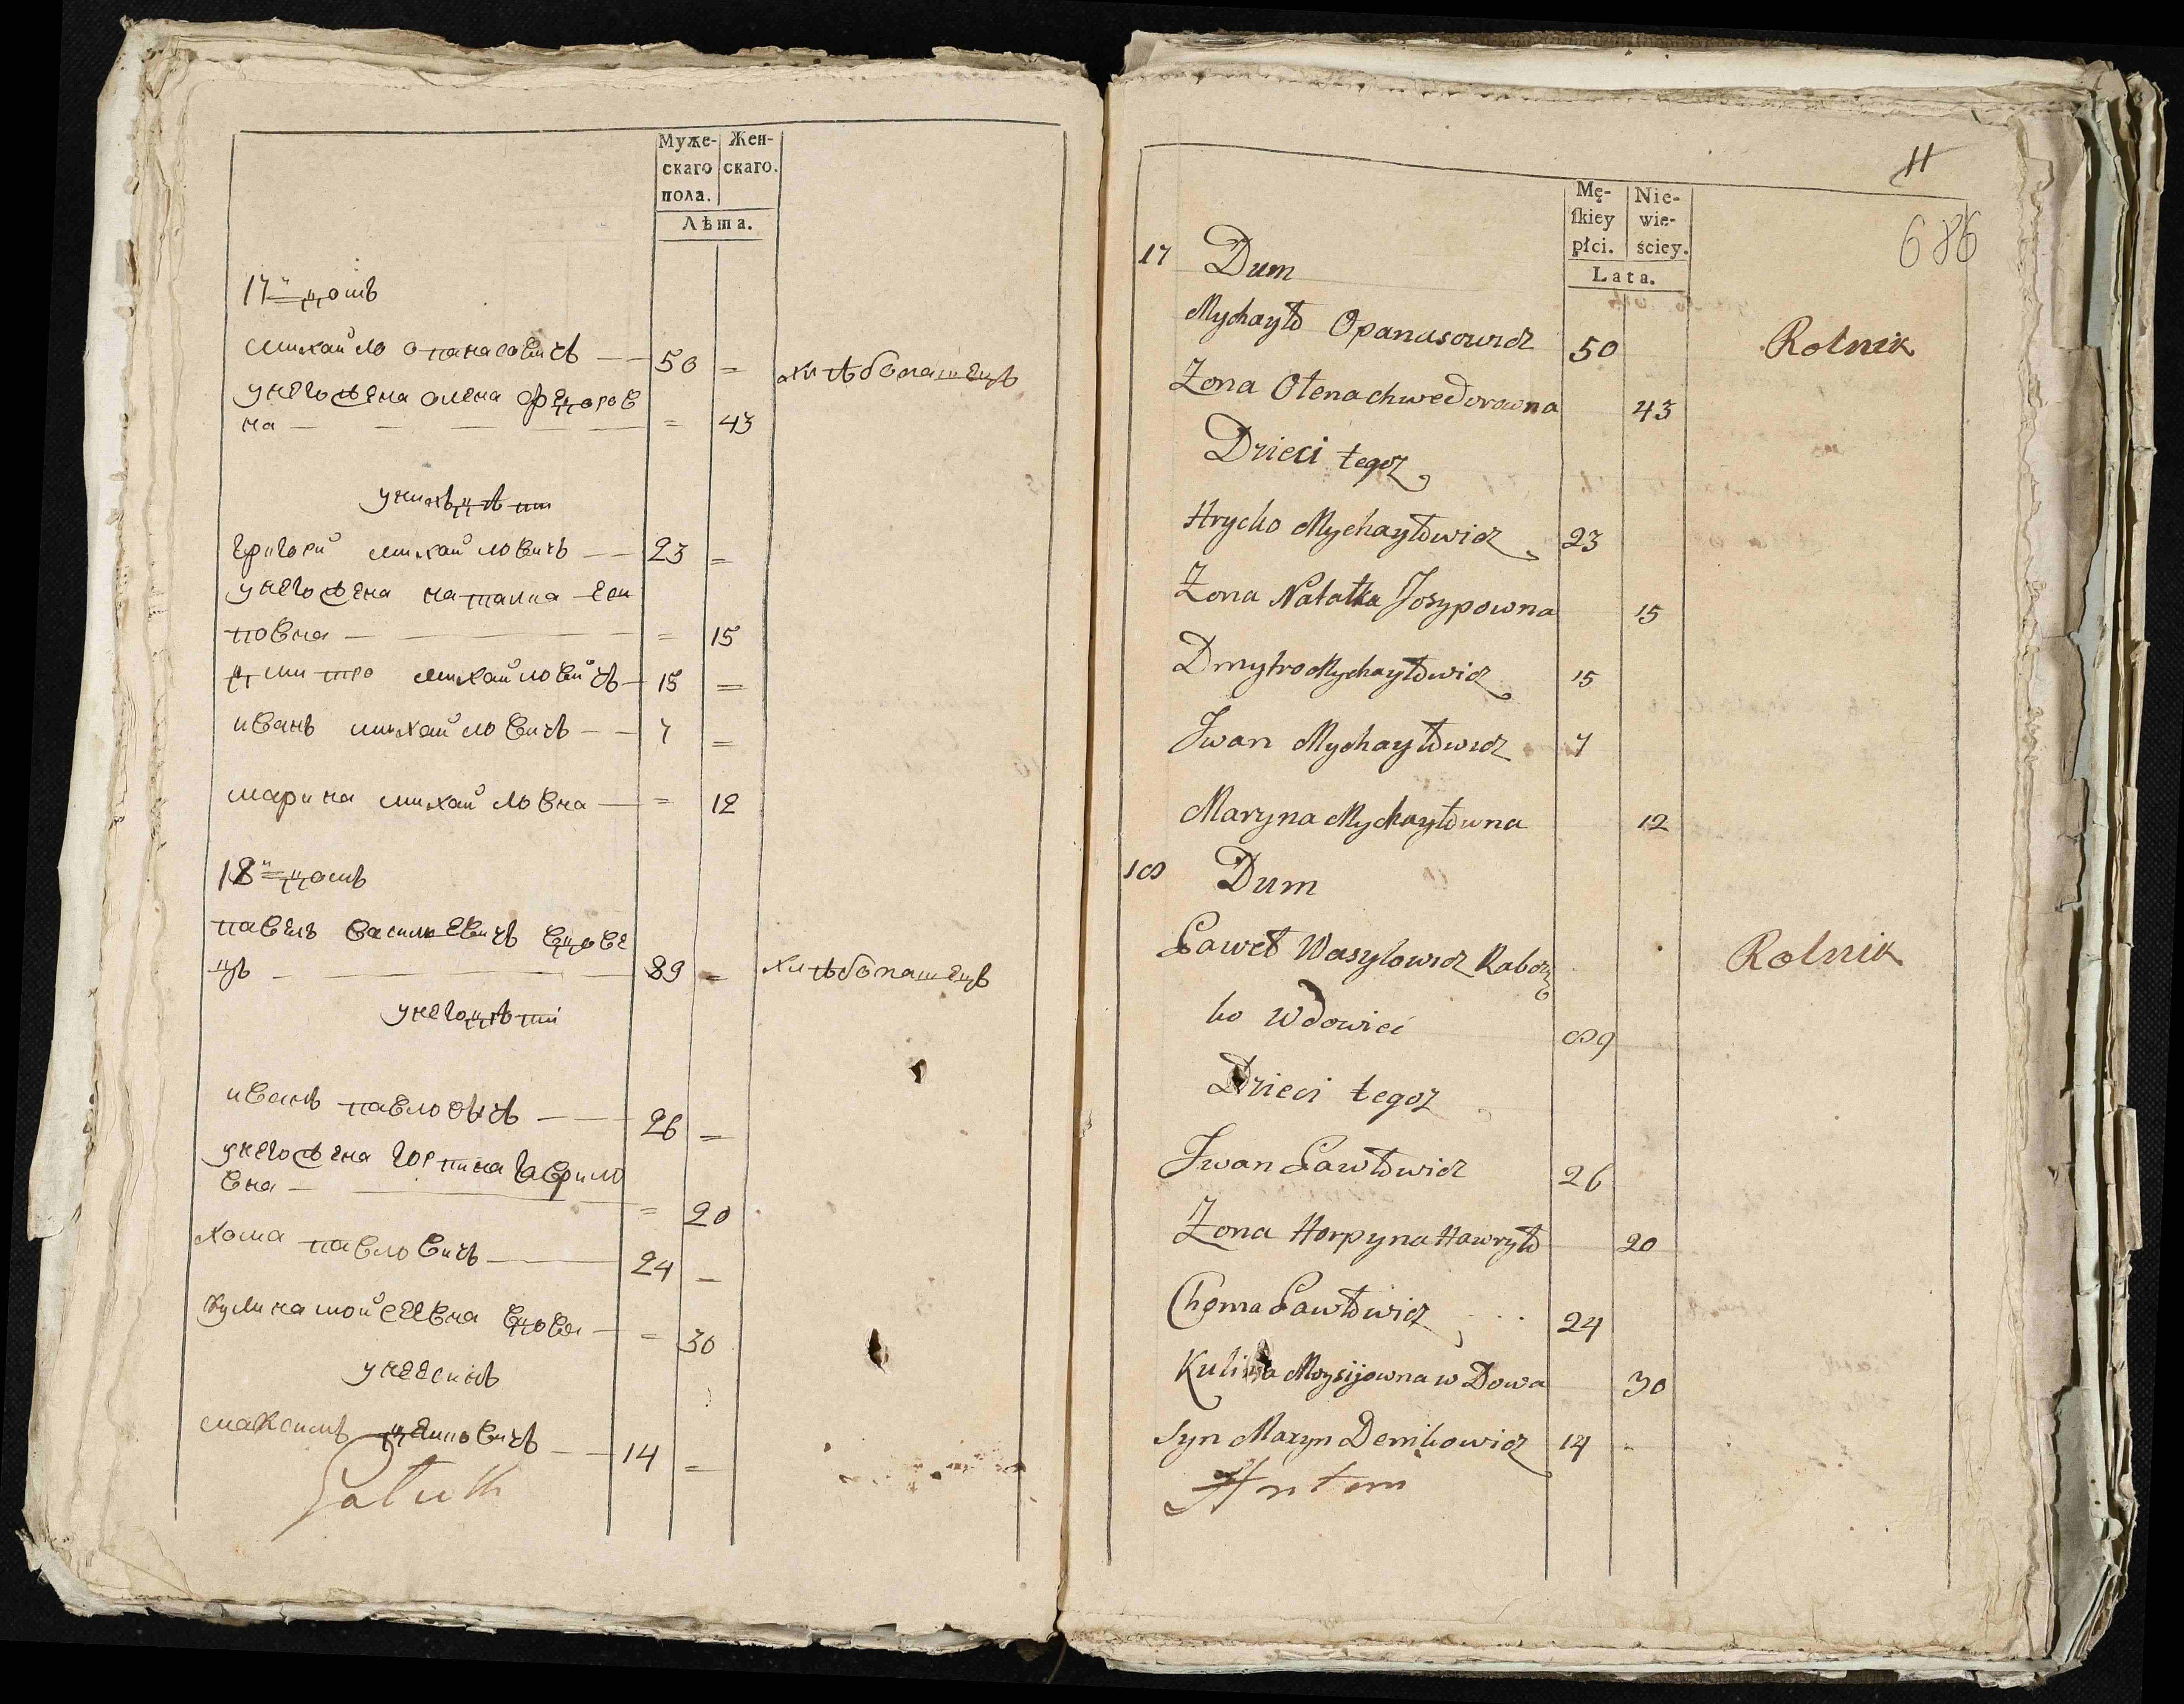 Муже-
скаго
пола.
Жен-
скаго.
Лѣта.
17ⁿ домъ
михайло опанасовичъ 50 =
хлѣбопашецъ
унего жена олена федоров
на = 43
унихъ дѣти
григорей михайловичъ 23 =
унего жена наталия еси
повна = 15
дмитро михайловичъ 15 =
иванъ михайловичъ 7 =
марина михайловна = 12
18ⁿ домъ
павелъ васильевичъ вдове
цъ 89 =
хлѣбопашецъ
унего дѣти
иванъ павловичъ 26 =
унего жена горпина гаврило
вна = 20
хома павловичъ 24 =
кулина мойсеевна вдова = 30
унее синъ
максимъ демповичъ 14 =
11
686
Mę-
ſkiey
płci.
Nie-
wie-
ściey.
Lata.
17 Dum
Mychayło Opanasowicz 50
Rolnik
Żona Olena chwedorowna 43
Dzieci tegoż
Hrycko Mychayłowicz 23
Żona Natałka Josypowna 15
Dmytro Mychayłowicz 15
Jwan Mychayłowicz 7
Maryna Mychayłowna 12
18 Dum
Paweł Wasylowicz
Rolnik
ko Wdowiec 89
Dzieci tegoż
Jwan Pawłowicz 26
Żona Horpyna Hawryło 20
Choma Pawłowicz 24
Kulina Moysijowna wDowa 30
Syn Maxym Demkowicz 14